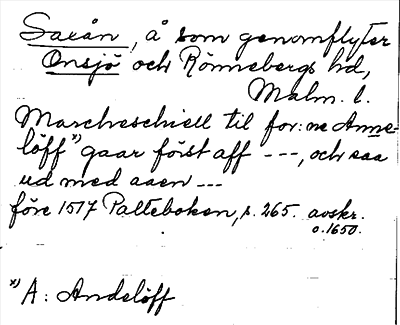 Saxån, å som genomflyter
Onsjö och Rönnebergs hd,
Malm. l.
Marcheschiell til for:ne Anne-
löff*) gaar först aff ---, och saa
ud med aaen ---
före 1517 Palteboken, s. 265. avskr.
o.1650.
*) A: Andslöff